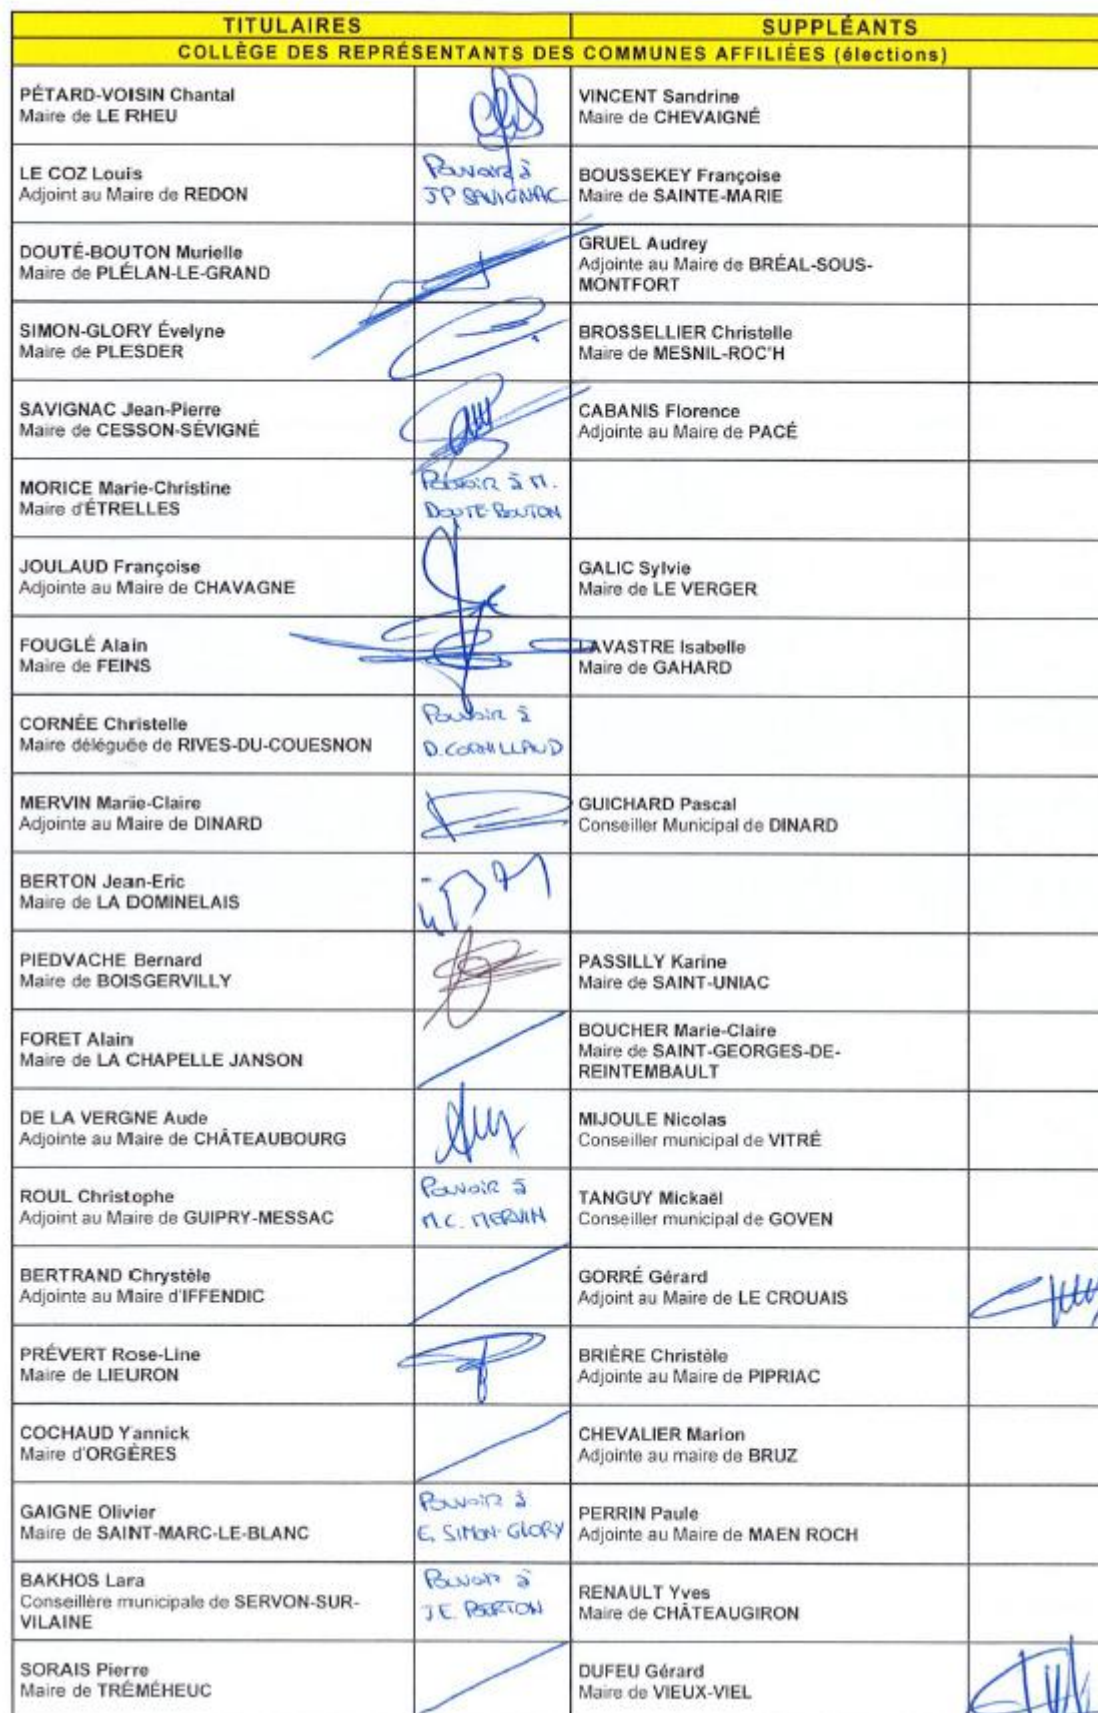 TITULAIRES SUPPLÉANTS
COLLÈGE DES REPRÉSENTANTS DES COMMUNES AFFILIÉES (élections)
PÉTARD-VOISIN Chantal
Maire de LE RHEU
VINCENT Sandrine
Maire de CHEVAIGNÉ
LE COZ Louis
Adjoint au Maire de REDON
Pouvoir à
JP SAVIGNAC
BOUSSEKEY Françoise
Maire de SAINTE-MARIE
DOUTÉ-BOUTON Murielle
Maire de PLÉLAN-LE-GRAND
GRUEL Audrey
Adjointe au Maire de BRÉAL-SOUS-
MONTFORT
SIMON-GLORY Évelyne
Maire de PLESDER
BROSSELLIER Christelle
Maire de MESNIL-ROC'H
SAVIGNAC Jean-Pierre
Maire de CESSON-SÉVIGNÉ
CABANIS Florence
Adjointe au Maire de PACÉ
MORICE Marie-Christine
Maire d'ÉTRELLES
Pouvoir à M.
DOUTE-BOUTON
JOULAUD Françoise
Adjointe au Maire de CHAVAGNE
GALIC Sylvie
Maire de LE VERGER
FOUGLÉ Alain
Maire de FEINS
LAVASTRE Isabelle
Maire de GAHARD
CORNÉE Christelle
Maire déléguée de RIVES-DU-COUESNON
Pouvoir à
D. CORNILLAUD
MERVIN Marie-Claire
Adjointe au Maire de DINARD
GUICHARD Pascal
Conseiller Municipal de DINARD
BERTON Jean-Eric
Maire de LA DOMINELAIS
PIEDVACHE Bernard
Maire de BOISGERVILLY
PASSILLY Karine
Maire de SAINT-UNIAC
FORET Alain
Maire de LA CHAPELLE JANSON
BOUCHER Marie-Claire
Maire de SAINT-GEORGES-DE-
REINTEMBAULT
DE LA VERGNE Aude
Adjointe au Maire de CHÂTEAUBOURG
MIJOULE Nicolas
Conseiller municipal de VITRÉ
ROUL Christophe
Adjoint au Maire de GUIPRY-MESSAC
Pouvoir à
M.C. MERVIN
TANGUY Mickaël
Conseiller municipal de GOVEN
BERTRAND Chrystèle
Adjointe au Maire d'IFFENDIC
GORRÉ Gérard
Adjoint au Maire de LE CROUAIS
PRÉVERT Rose-Line
Maire de LIEURON
BRIÈRE Christèle
Adjointe au Maire de PIPRIAC
COCHAUD Yannick
Maire d'ORGÈRES
CHEVALIER Marion
Adjointe au maire de BRUZ
GAIGNE Olivier
Maire de SAINT-MARC-LE-BLANC
Pouvoir à
E. SIMON-GLORY
PERRIN Paule
Adjointe au Maire de MAEN ROCH
BAKHOS Lara
Conseillère municipale de SERVON-SUR-
VILAINE
Pouvoir à
J.E. BERTON
RENAULT Yves
Maire de CHÂTEAUGIRON
SORAIS Pierre
Maire de TRÉMÉHEUC
DUFEU Gérard
Maire de VIEUX-VIEL